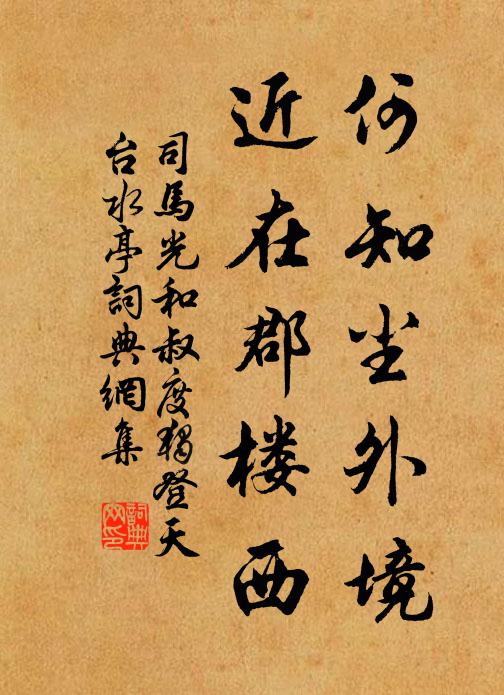 何知尘外境
近在郡楼西
司馬光和叔度獨登天
台水亭詞典網集
詞典
网印